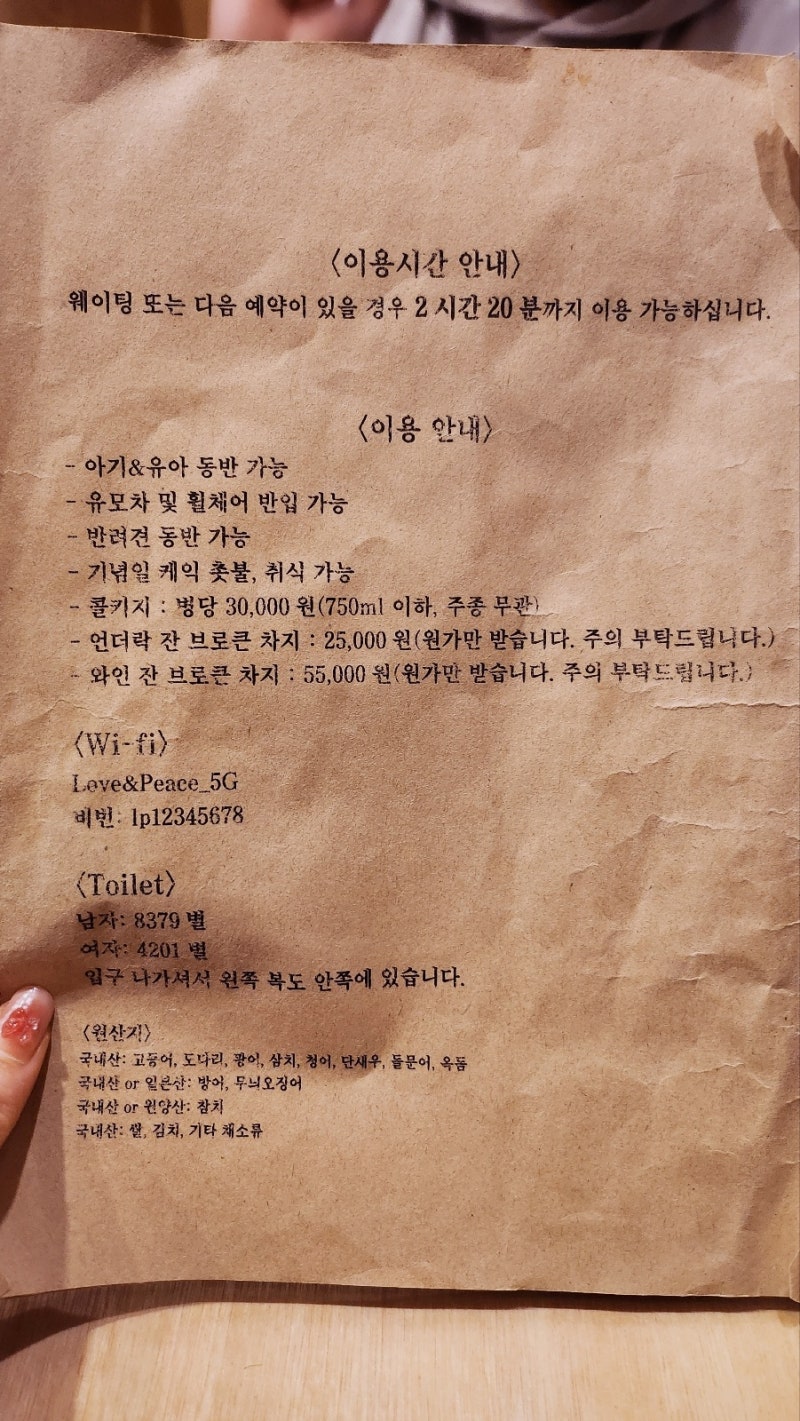 〈이용시간 안내〉
웨이팅 또는 다음 예약이 있을 경우 2 시간 20 분까지 이용 가능하십니다.
〈이용 안내〉
- 아기&유아 동반 가능
- 유모차 및 휠체어 반입 가능
- 반려견 동반 가능
- 기념일 케익 촛불, 취식 가능
- 콜키지 : 병당 30,000 원(750ml 이하, 주종 무관)
- 언더락 잔 브로큰 차지 : 25,000 원(원가만 받습니다. 주의 부탁드립니다.)
- 와인 잔 브로큰 차지 : 55,000 원(원가만 받습니다. 주의 부탁드립니다.)
〈Wi-fi〉
Love&Peace_5G
비번: lp12345678
〈Toilet〉
남자: 8379 별
여자: 4201 별
입구 나가셔서 왼쪽 복도 안쪽에 있습니다.
〈원산지〉
국내산: 고등어, 도다리, 광어, 삼치, 청어, 단새우, 돌문어, 옥돔
국내산 or 일본산: 방어, 무늬오징어
국내산 or 원양산: 참치
국내산: 쌀, 김치, 기타 채소류